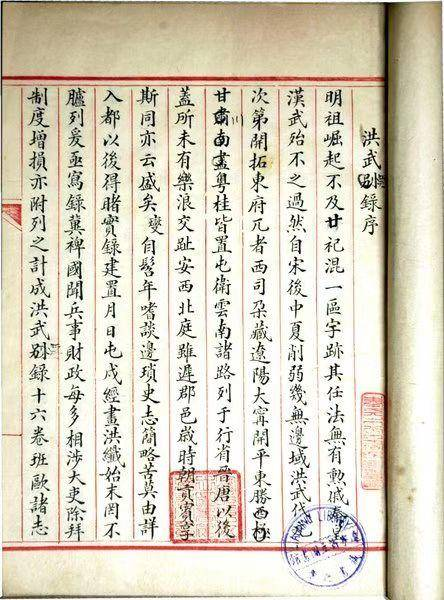 洪武別錄序
明祖崛起不及廿祀混一區宇跡其任法無有勲戚秦皇
漢武殆不之過然自宋後中夏削弱幾無邊域洪武
次第開拓東府兀者西司朶藏遼陽大甯開平東勝西極
甘肅南盡粤桂皆置屯衛雲南諸路列于行省晉唐以後
蓋所未有樂浪交趾安西北庭雖遲郡邑歲時朝貢賓享
斯同亦云盛矣燮自髫年嗜談邊瑣史志簡略苦莫由詳
入都以後得睹實錄建置月日屯戍經畫洪纖始末罔不
臚列爰亟寫錄冀裨國聞兵事財政每多相涉大吏除拜
制度增損亦附列之計成洪武別錄十六卷班歐諸志
LIBRARY